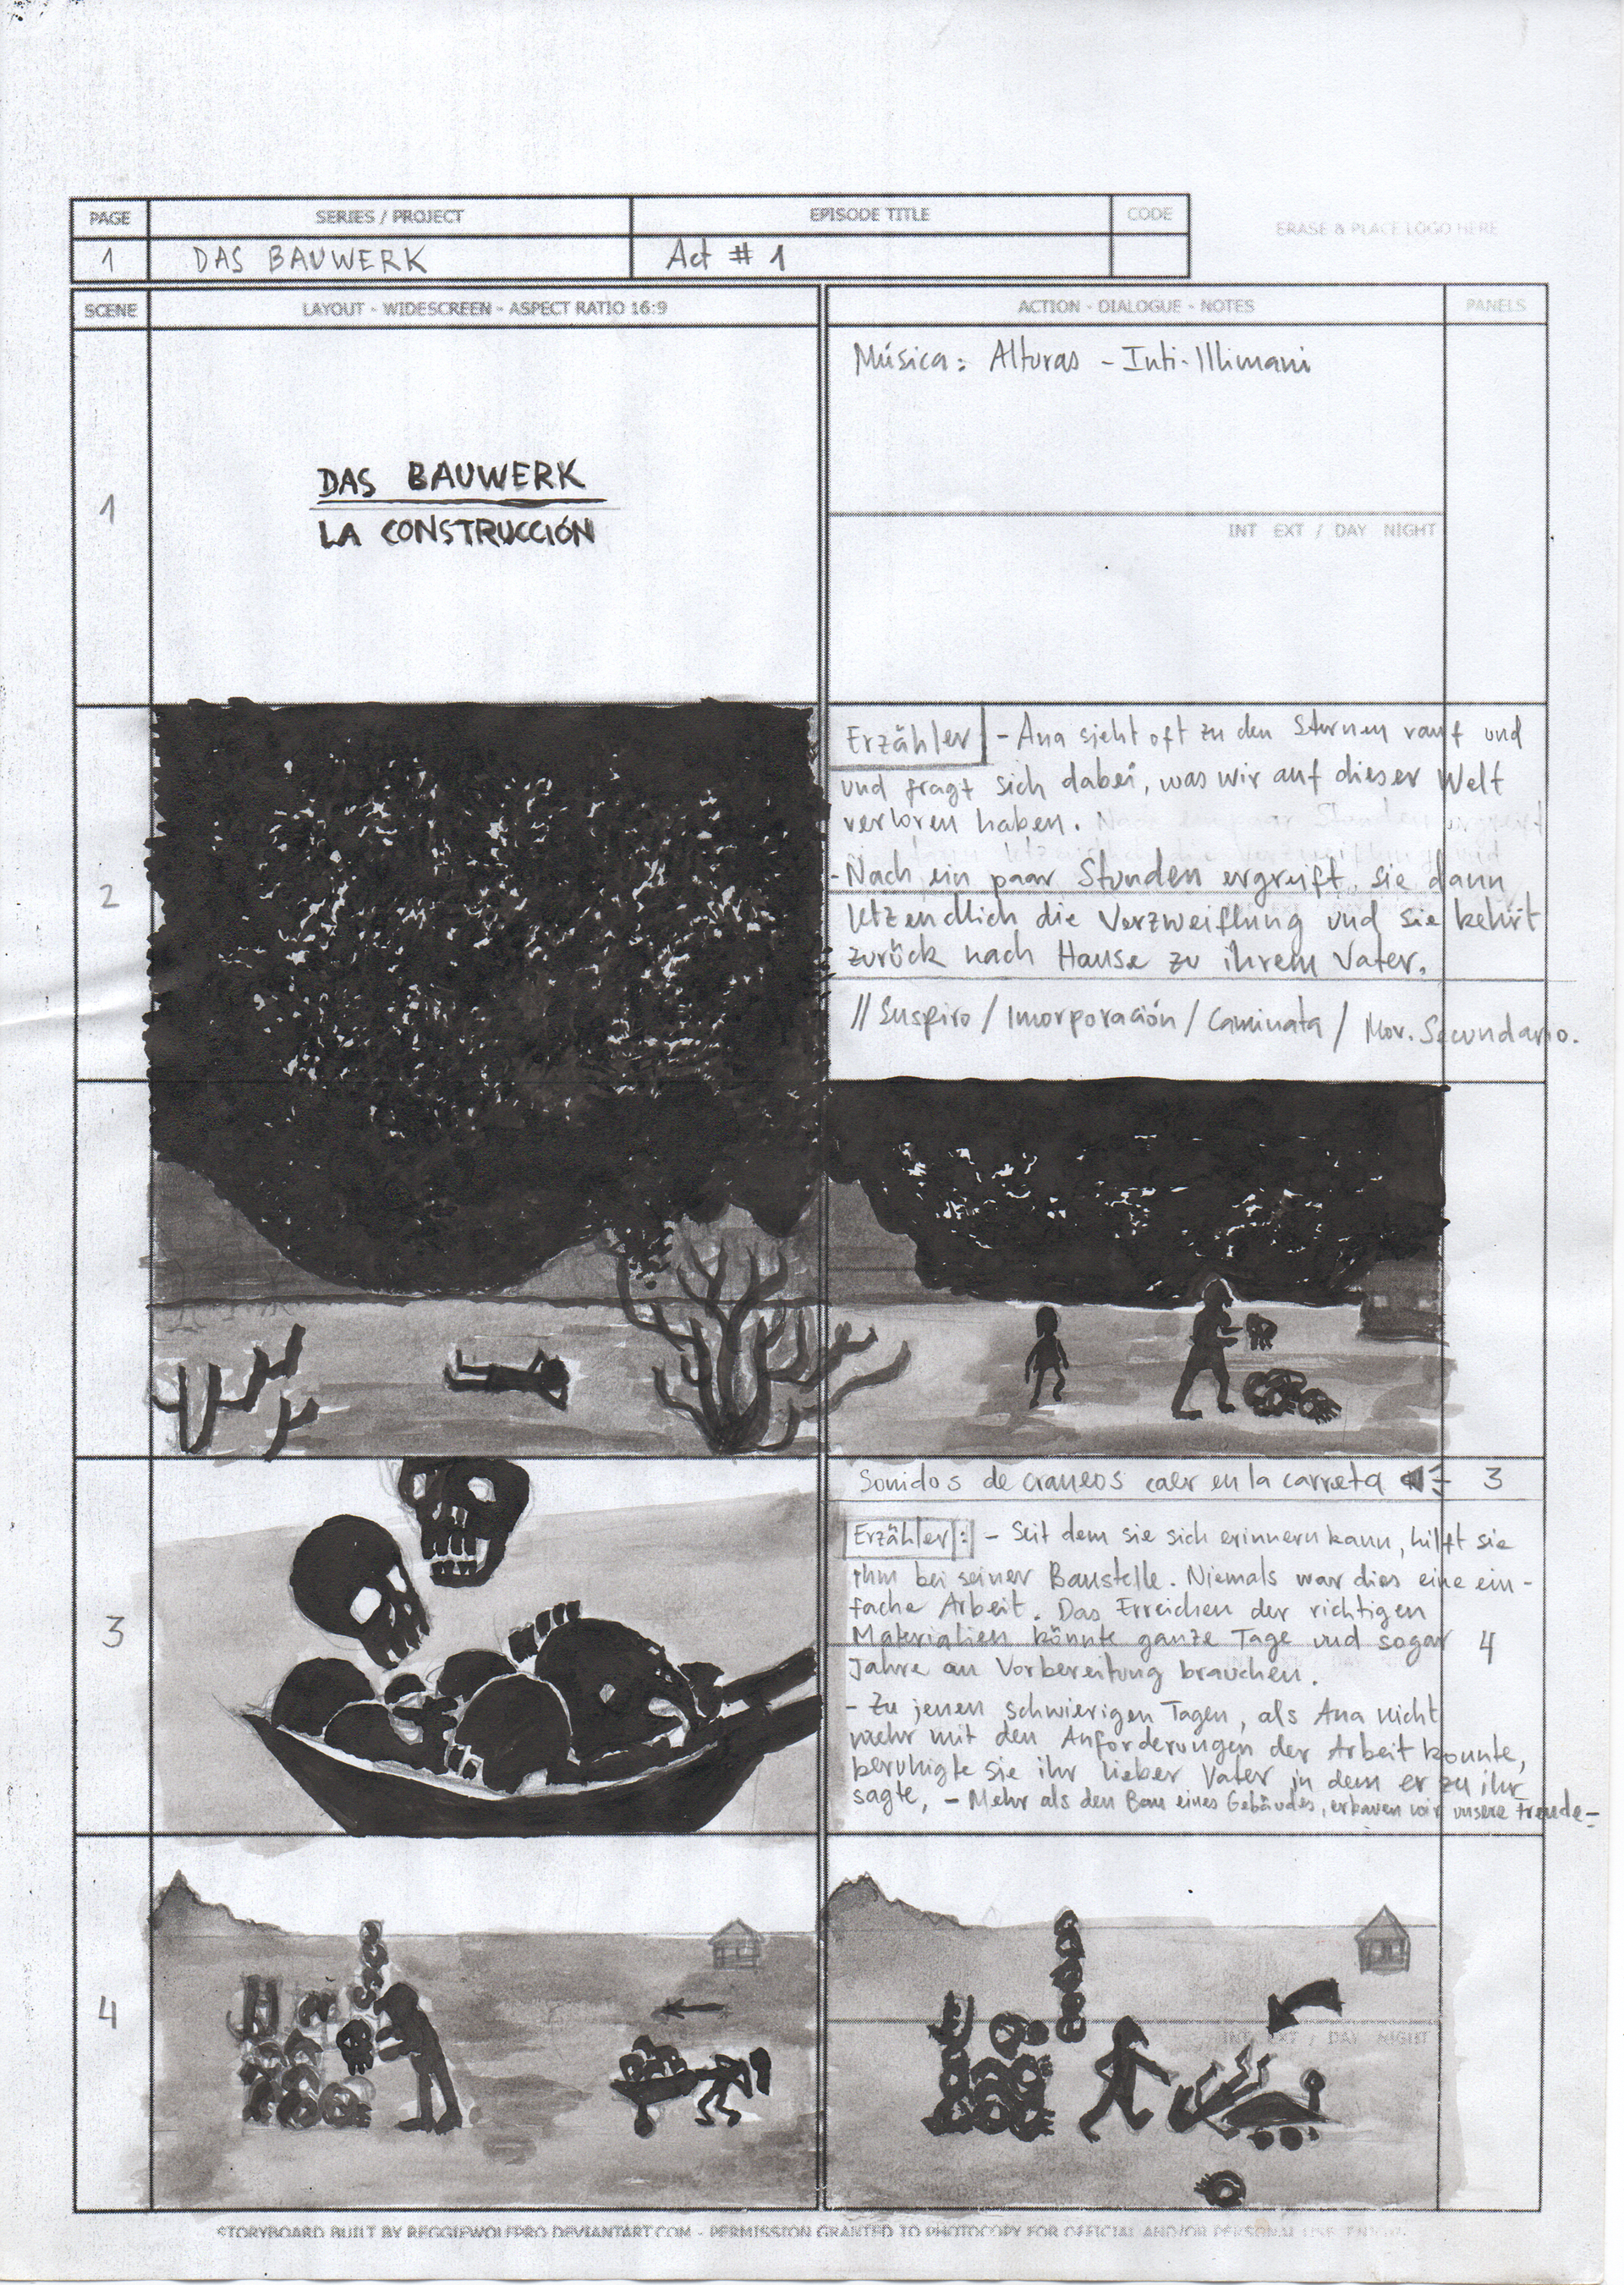 PAGE SERIES / PROJECT EPISODE TITLE CODE
ERASE & PLACE LOGO HERE
1 DAS BAUWERK Act # 1
SCENE LAYOUT - WIDESCREEN - ASPECT RATIO 16:9 ACTION - DIALOGUE - NOTES PANELS
1
DAS BAUWERK
LA CONSTRUCCIÓN
Música: Alturas - Inti-Illimani
INT EXT / DAY NIGHT
2
Erzähler - Ana sieht oft zu den Sternen rauf und
und fragt sich dabei, was wir auf dieser Welt
verloren haben.
- Nach ein paar Stunden ergreift sie dann
letzendlich die Verzweiflung und sie kehrt
zurück nach Hause zu ihrem Vater.
// Suspiro / Imorporación / Caminata / Mov. Secundario.
3
Sonidos de craneos caer en la carreta 3
Erzähler: - Seit dem sie sich erinnern kann, hilft sie
ihm bei seiner Baustelle. Niemals war dies eine ein-
fache Arbeit. Das Erreichen der richtigen
Materialien könnte ganze Tage und sogar 4
Jahre an Vorbereitung brauchen.
- Zu jenen schwierigen Tagen, als Ana nicht
mehr mit den Anforderungen der Arbeit konnte,
beruhigte sie ihr lieber Vater in dem er zu ihr
sagte, - Mehr als den Bau eines Gebäudes, erbauen wir unsere Freude-
4
INT EXT / DAY NIGHT
STORYBOARD BUILT BY REGGIEWOLFPRO.DEVIANTART.COM - PERMISSION GRANTED TO PHOTOCOPY FOR OFFICIAL AND/OR PERSONAL USE.